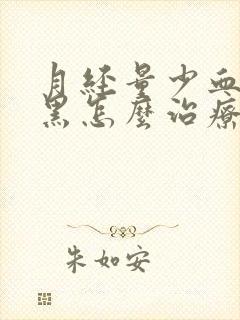 月経量少血
黑怎麼治療
朱如安